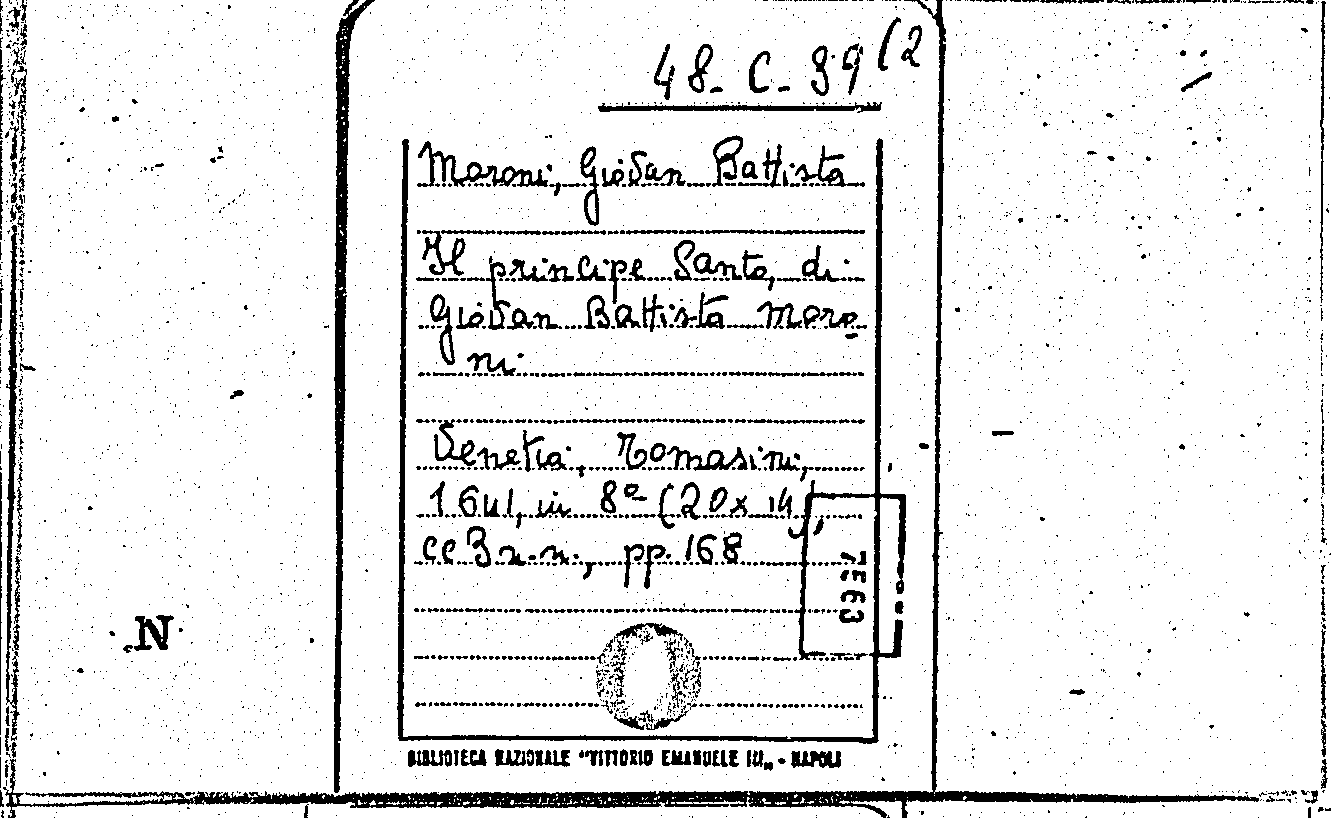 48-C-39(2
Moroni, Giovan Battista
Il principe Santo, di
Giovan Battista Moro
ni
Venetia, Tomasini,
1641, in 8º (20x14),
cc 3 n.n., pp. 168
7563
N
BIBLIOTECA NAZIONALE "VITTORIO EMANUELE III„ - NAPOLI